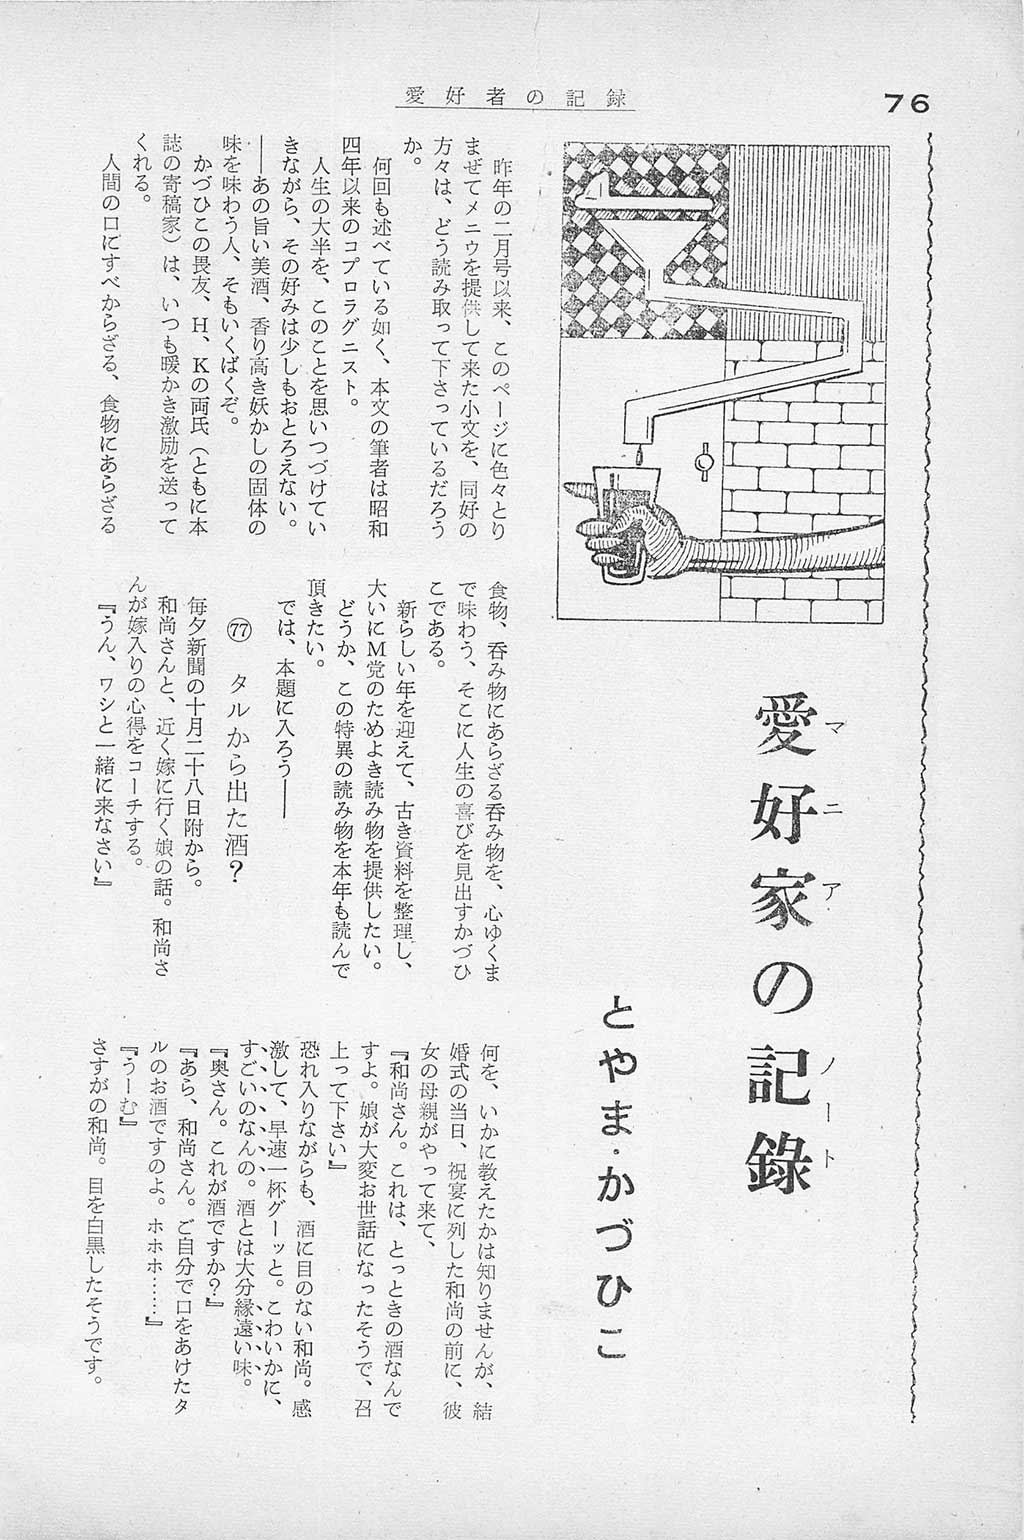 愛好者の記録
76
愛好家の記録
マニア・ノート
とやま・かづひこ
昨年の二月号以来、このページに色々とり
まぜてメニウを提供して来た小文を、同好の
方々は、どう読み取って下さっているだろう
か。
何回も述べている如く、本文の筆者は昭和
四年以来のコプロラグニスト。
人生の大半を、このことを思いつづけてい
きながら、その好みは少しもおとろえない。
――あの旨い美酒、香り高き妖かしの固体の
味を味わう人、そもいくばくぞ。
かづひこの畏友、H、Kの両氏（ともに本
誌の寄稿家）は、いつも暖かき激励を送って
くれる。
人間の口にすべからざる、食物にあらざる
食物、呑み物にあらざる呑み物を、心ゆくま
で味わう、そこに人生の喜びを見出すかづひ
こである。
新らしい年を迎えて、古き資料を整理し、
大いにM党のためよき読み物を提供したい。
どうか、この特異の読み物を本年も読んで
頂きたい。
では、本題に入ろう――
㊆ タルから出た酒？
毎夕新聞の十月二十八日附から。
和尚さんと、近く嫁に行く娘の話。和尚さ
んが嫁入りの心得をコーチする。
『うん、ワシと一緒に来なさい』
何を、いかに教えたかは知りませんが、結
婚式の当日、祝宴に列した和尚の前に、彼
女の母親がやって来て、
『和尚さん。これは、とっときの酒なんで
すよ。娘が大変お世話になったそうで、召
上って下さい』
恐れ入りながらも、酒に目のない和尚。感
激して、早速一杯グーッと。こわいかに、
すごいのなんの。酒とは大分縁遠い味。
『奥さん。これが酒ですか？』
『あら、和尚さん。ご自分で口をあけたタ
ルのお酒ですのよ。ホホホ……』
『うーむ』
さすがの和尚。目を白黒したそうです。